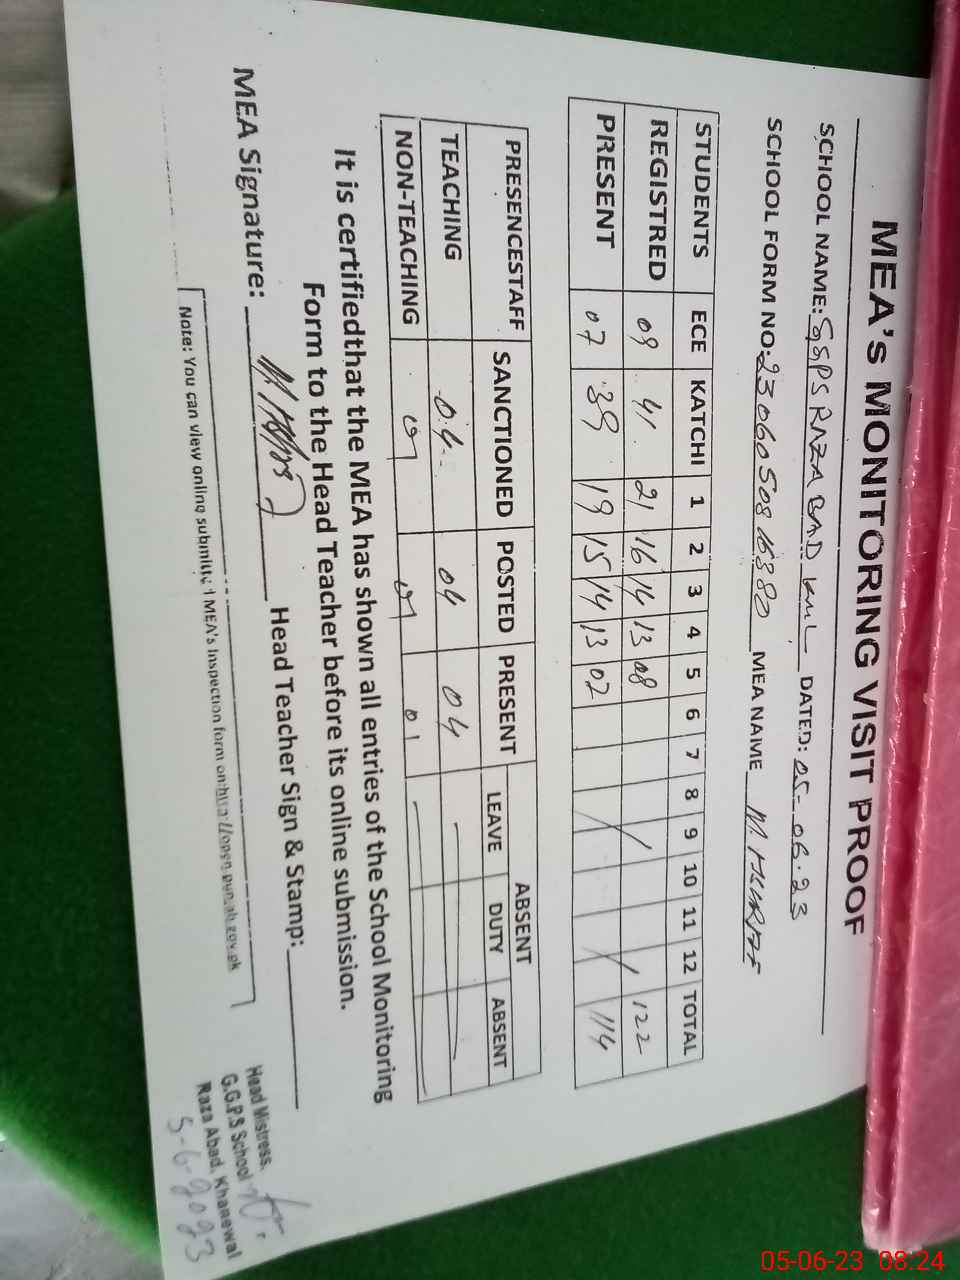 MEA's MONITORING VISIT PROOF
SCHOOL NAME: GGPS RAZA BAD KWL DATED: 05-06-23
SCHOOL FORM NO: 23060508 16380 MEA NAME M. ASHRAF
STUDENTS ECE KATCHI 1 2 3 4 5 6 7 8 9 10 11 12 TOTAL
REGISTRED 09 41 21 16 14 13 08 122
PRESENT 07 39 19 15 14 13 07 114
PRESENCESTAFF SANCTIONED POSTED PRESENT ABSENT
LEAVE DUTY ABSENT
TEACHING 04 04 04
NON-TEACHING 01 01 01
It is certifiedthat the MEA has shown all entries of the School Monitoring
Form to the Head Teacher before its online submission.
MEA Signature: Head Teacher Sign & Stamp:
Note: You can view online submitted MEA's Inspection form on:http://open.punjab.gov.pk
Head Mistress.
G.G.P.S School
Raza Abad. Khanewal
5-6-2023
05-06-23 08:24